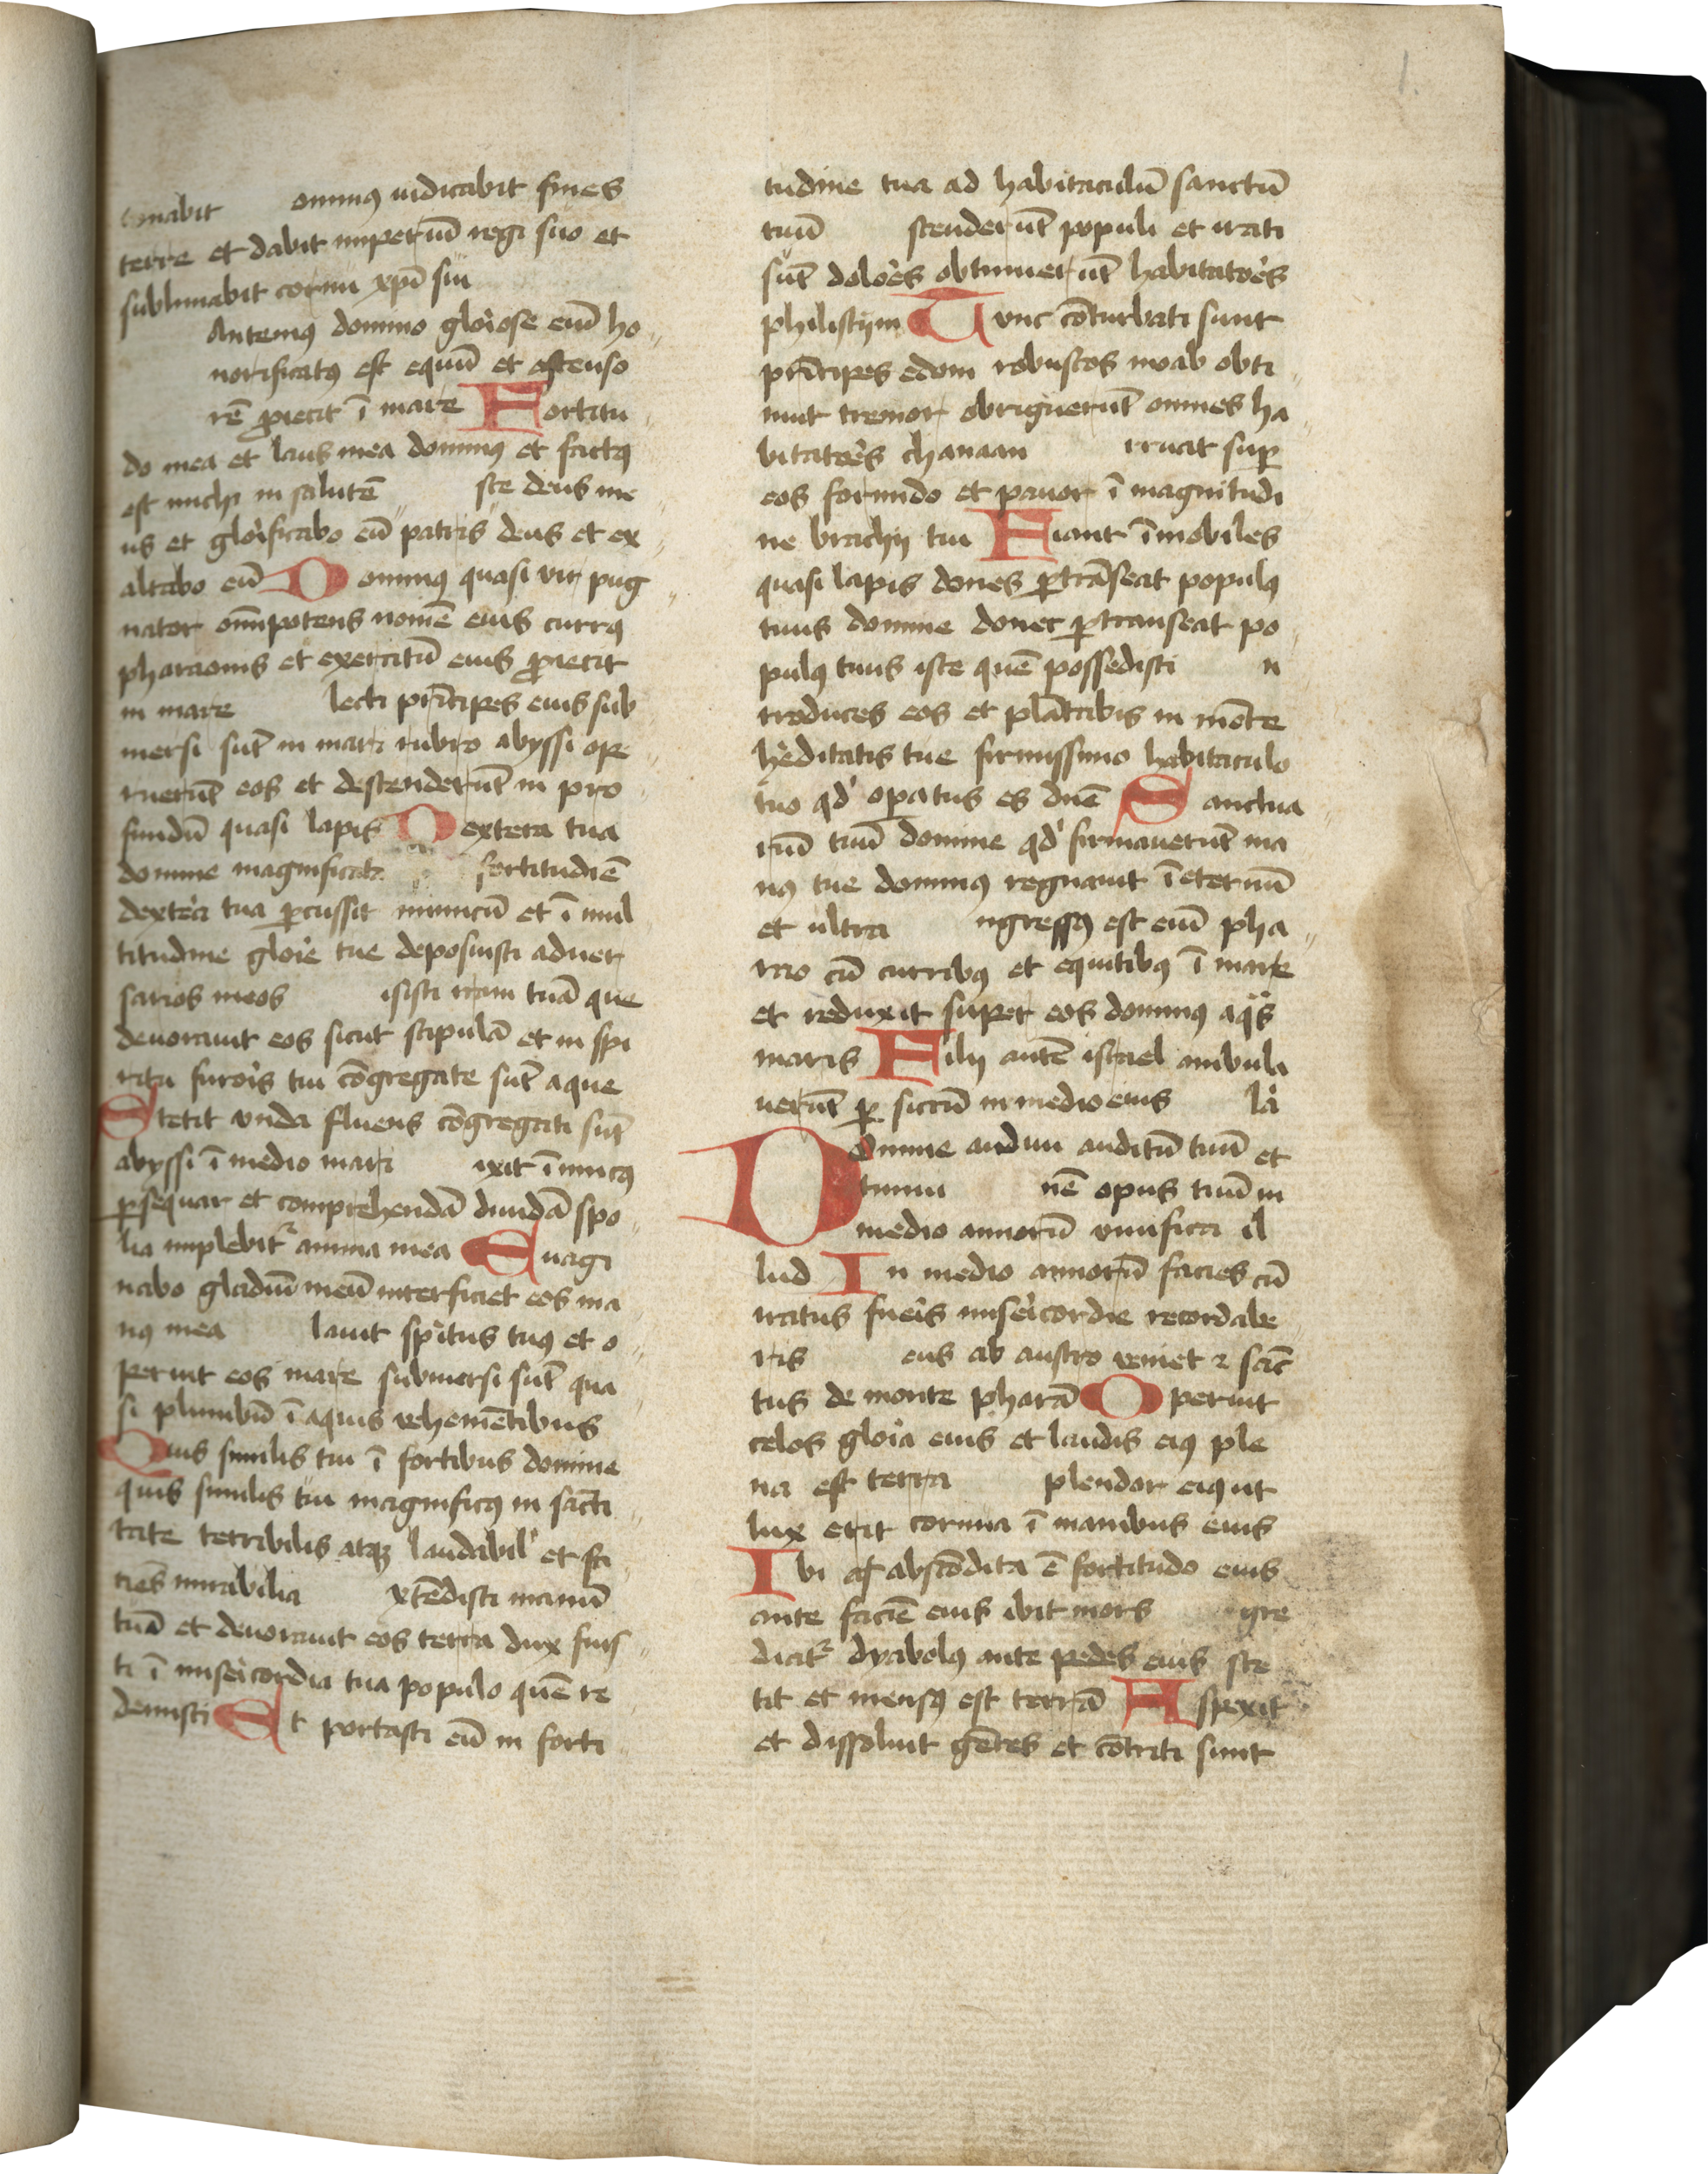 onabit omnus iudicabit fines
terre et dabit imperiū regi suo et
sublimabit cornu xpī sui
Antemus domino gloiose eni ho
norificatꝯ est equū et astenso
rē proiecit ī mare Fortitu
do mea et laus mea dominꝯ et factꝯ
est michi in salutē ste deus me
us et gloificabo eū patris deus et ex
altabo eū Dominꝯ quasi vir pug
nator omnipotens nomē eius currꝯ
pharaonis et exercitū eius ꝓiecit
in mare lecti prīcipes eius sub
mersi sūt in mari rubro abyssi ope
ruerūt eos et descenderūt in pro
fundū quasi lapis Dextera tua
domine magnificata fortitudīe
dextea tua ꝑcussit inimicū et ī mul
titudine gloie tue deposuisti aduer
sarios meos isisti iram tuā que
deuorauit eos sicut stipulā et in spi
ritu furois tui cōgregate sūt aque
Stetit vnda fluens cōgregati sūt
abyssi ī medio mari ixit īimicꝯ
ꝑsequar et comprehendā diuidā spo
lia implebit anima mea Euagi
nabo gladiū meū interficiet eos ma
nꝯ mea lauit spitus tuꝯ et o
peruit eos mare submersi sūt qua
si plumbū ī aquis vehemētibus
Quis similis tui ī fortibus domine
quis similis tui magnificꝯ in sacti
tate terribilis atqꝫ laudabil' et fa
ciēs mirabilia xtēdisti manū
tuā et deuorauit eos terra dux fuis
ti ī miseicordia tua populo quē re
demisti Et portasti eū in forti
tudine tua ad habitaculū sanctū
tuū scenderūt populi et irati
sūt doloes obtinuerūt habitatoes
philistijm Tunc cōturbati sunt
prīcipes edom robustos moab obti
nuit tremor obriguerūt omnes ha
bitatoes chanaan rruat suꝑ
eos formido et pauor ī magnitudi
ne brachij tui Fiant īmobiles
quasi lapis dones ꝑtrāseat populꝯ
tuus domine donec ꝑtranseat po
pulꝯ tuus iste quē possedisti n
troduces eos et plātabis in mōte
heditatis tue firmissimo habitaculo
tuo qd' opatus es dnē Sanctua
riū tuū domine qd' firmauerūt ma
nꝯ tue dominꝯ regnauit ī eternū
et ultra ngressꝯ est eni pha
rao cū curribꝯ et equitibꝯ ī mare
et reduxit super eos dominꝯ aqs
maris Filij autē israel ambula
uerūt ꝑ siccū in medio eius la
Domine audiui auditū tuū et
timui nē opus tuū in
medio annorū viuifica il
lud In medio annorū facies cū
iratus fueis miseicordie recordabe
ris eus ab austro veniet ⁊ sāc
tus de monte pharā Operuit
celos gloia eius et laudis eiꝯ ple
na est terra plendor eiꝯ ut
lux erit cornua ī manibus eius
Ibi abscōdita ē fortitudo eius
ante faciē eius ibit mors gre
diat dyabolꝯ ante pedes eius ste
tit et mensꝯ est terrā Aspexit
et dissoluit gētes et cōtriti sunt